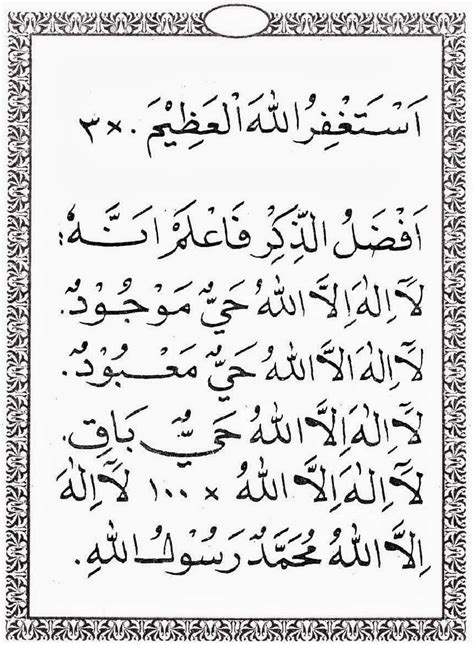 اَسْتَغْفِرُ اللهَ الْعَظِيْمَ . × ٣
اَفْضَلُ الذِّكْرِ فَاعْلَمْ اَنَّهُ :
لَآ اِلٰهَ اِلَّا اللهُ حَيٌّ مَوْجُوْدٌ.
لَآ اِلٰهَ اِلَّا اللهُ حَيٌّ مَعْبُوْدٌ.
لَآ اِلٰهَ اِلَّا اللهُ حَيٌّ بَاقٍ.
لَآ اِلٰهَ اِلَّا اللهُ × ١٠٠ لَآ اِلٰهَ
اِلَّا اللهُ مُحَمَّدٌ رَسُوْلُ اللهِ.